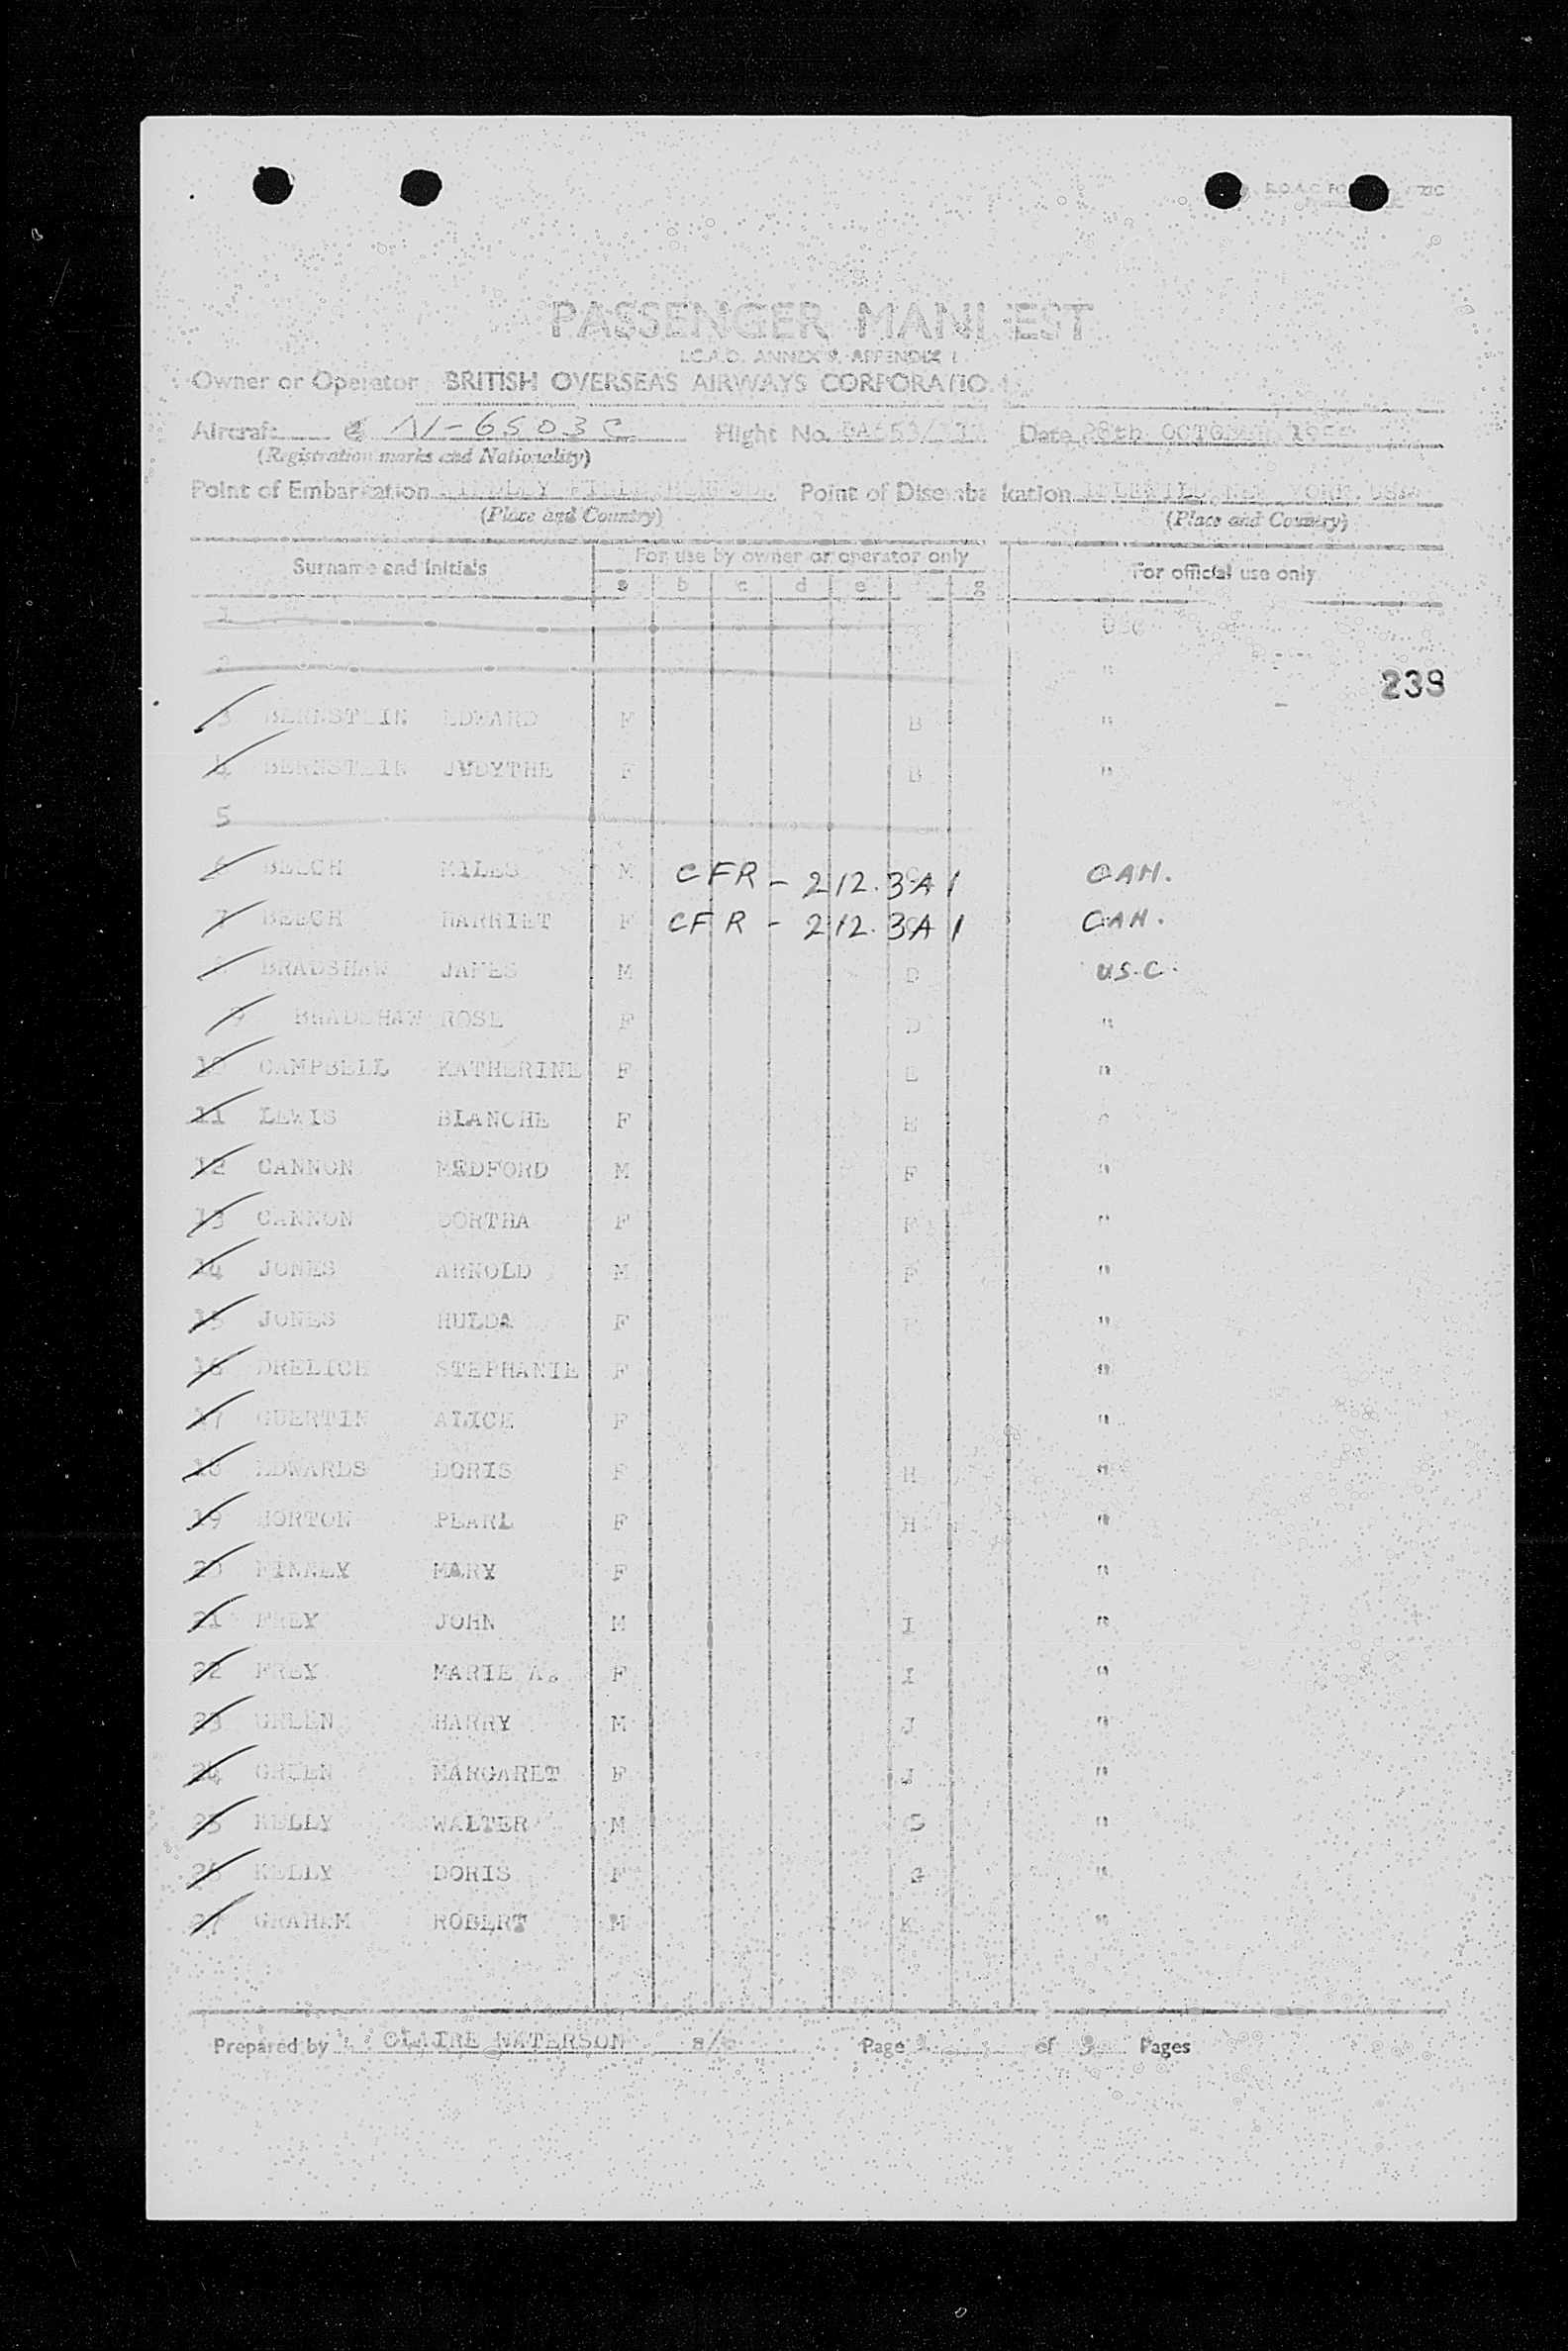 PASSENGER MANI EST
I.C.A.O. ANNEX 9, APPENDIX 1
Owner or Operator BRITISH OVERSEAS AIRWAYS CORPORATIO
Aircraft N-6503C Flight No. Date 28th OCTOBER
(Registration marks and Nationality)
Point of Embarkation Point of Disemba kation NEW YORK. USA
(Place and Country) (Place and Country)
Surname and Initials For use by owner or operator only For official use only
a b c d e g
1 USC
2 "
239
3 BERNSTEIN EDWARD F B "
4 BERNSTEIN JUDYTHE F B "
5
6 BEECH MILES M CFR - 212.3A1 CAN.
7 BEECH HARRIET F CFR - 212.3A1 CAN.
8 BRADSHAW JAMES M D U.S.C.
9 BRADSHAW ROSE F D "
10 CAMPBELL KATHERINE F E "
11 LEWIS BLANCHE F E "
12 CANNON MEDFORD M F "
13 CANNON DORTHA F F "
14 JONES ARNOLD M F "
15 JONES HULDA F "
16 DRELICH STEPHANIE F "
17 GUERTIN ALICE F "
18 EDWARDS DORIS F H "
19 HORTON PEARL F H "
20 FINNEY MARY F "
21 FREY JOHN M I "
22 FREY MARIE A. F I "
23 GREEN HARRY M J "
24 GREEN MARGARET F J "
25 KELLY WALTER M G "
26 KELLY DORIS F G "
27 GRAHAM ROBERT M K "
Prepared by CLAIRE WATERSON Page 1 of 3 Pages